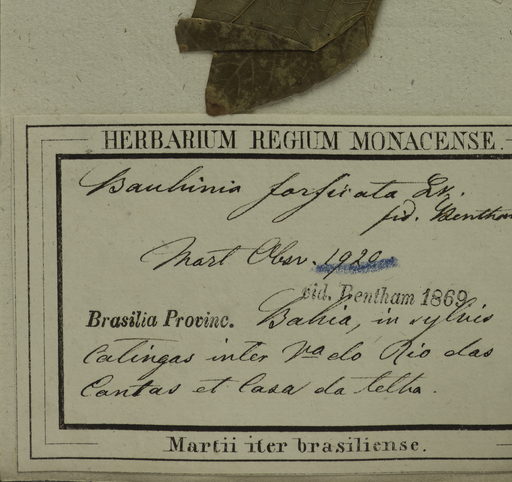 HERBARIUM REGIUM MONACENSE.
Bauhinia forficata Lk.
fid. Bentham
Mart Obsv. 1920
vid. Bentham 1869
Brasilia Provinc. Bahia, in sylvis
Catingas inter Va do Rio das
Contas et Casa da telha.
Martii iter brasiliense.